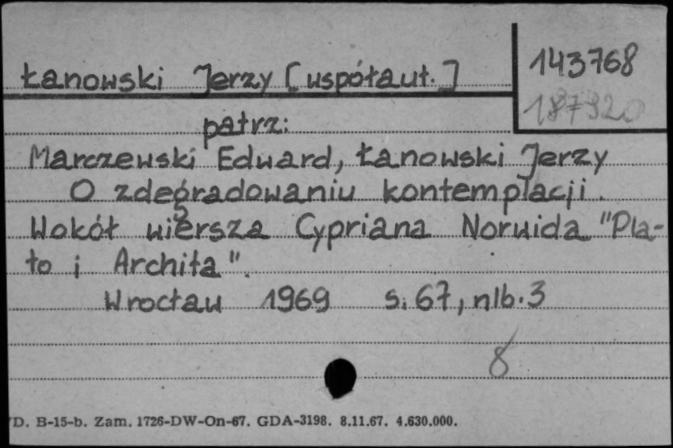 Łanowski Jerzy [współaut.]
143768
187920
patrz:
Marczewski Edward, Łanowski Jerzy
O zdegradowaniu kontemplacji.
Wokół wiersza Cypriana Norwida "Pla-
to i Archita".
Wrocław 1969 s. 67, nlb. 3
8
D. B-15-b. Zam. 1726-DW-On-67. GDA-3198. 8.11.67. 4.630.000.